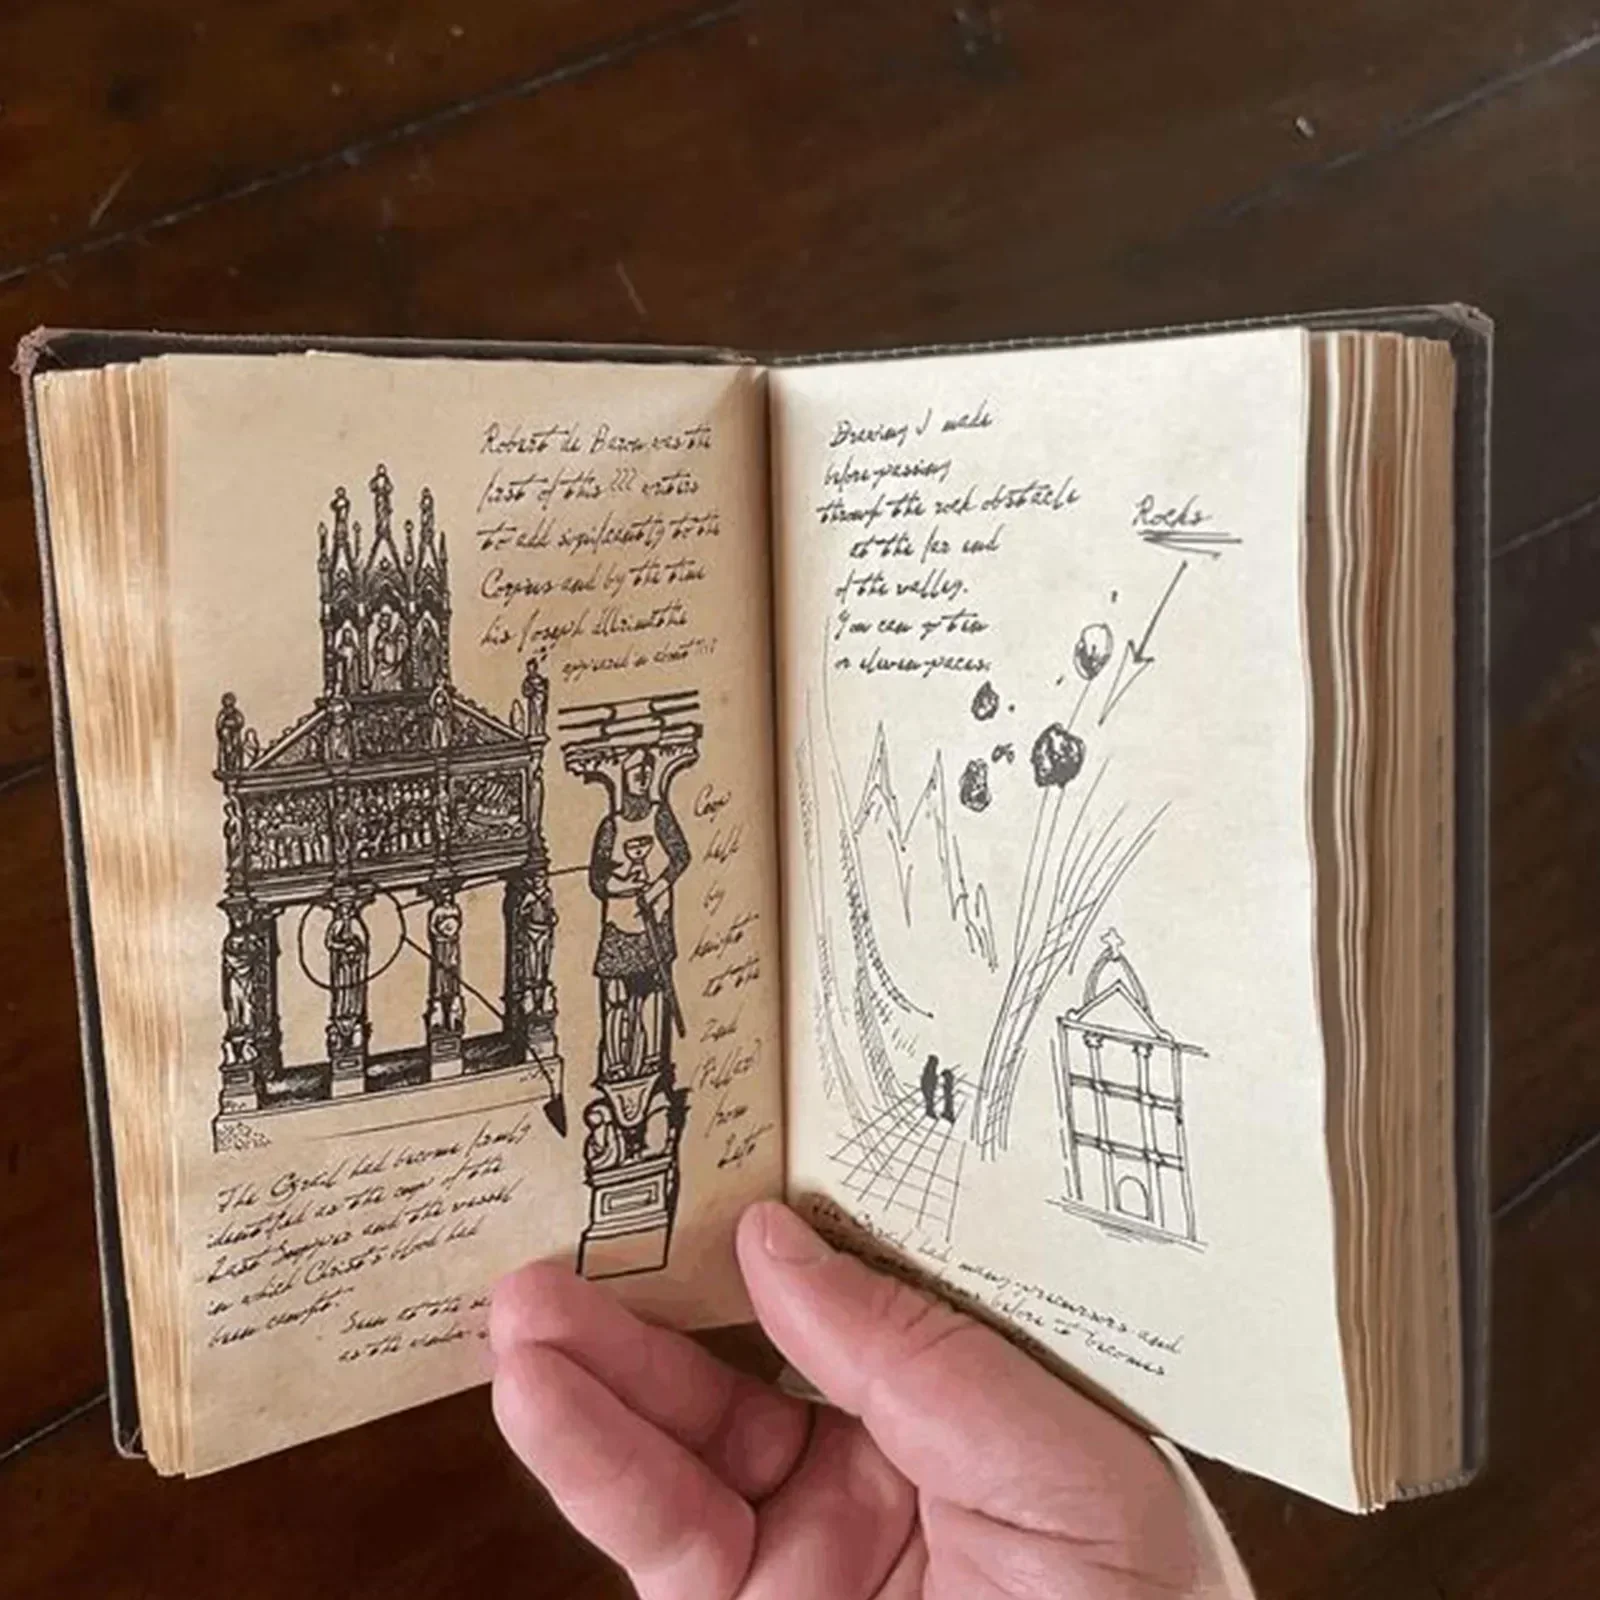 Robert de Baron was the
first of this ??? writers
to add significantly to the
Corpus and by the time
his Joseph d'Arimathe
appeared in about
Cup
held
by
knight
to the
2nd
(Pillar)
from
Left
The Grail had become firmly
identified as the cup of the
Last Supper and the vessel
in which Christ's blood had
been caught.
Seen to the
as the
Drawing I made
before passing
through the rock obstacle
at the far end
of the valley.
You can go ten
or eleven paces.
Rocks
The Grail had many precursors and
before it becomes